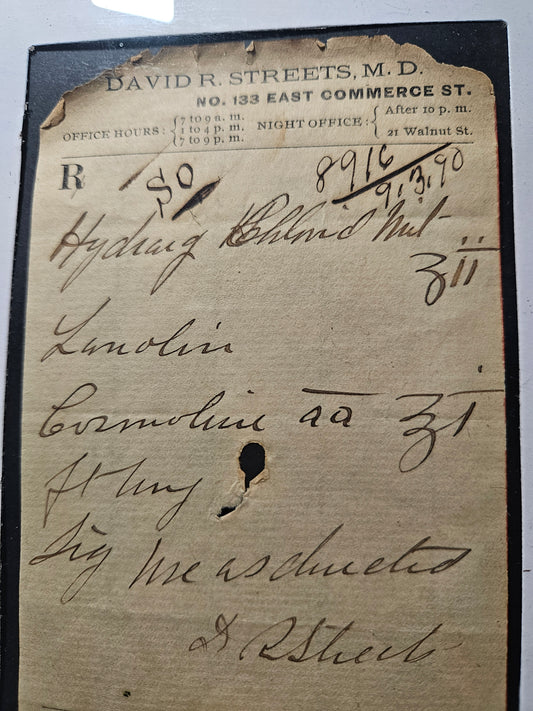 DAVID R. STREETS, M. D.
NO. 133 EAST COMMERCE ST.
OFFICE HOURS: { 7 to 9 a. m. 1 to 4 p. m. 7 to 9 p. m. } NIGHT OFFICE: { After 10 p. m. 21 Walnut St.
R 50 8916
9.3.90
Hydrarg Chlorid Mit
ʒii
Lanolin
Cosmoline aa ʒi
ft ung
Sig Use as directed
D R Streets